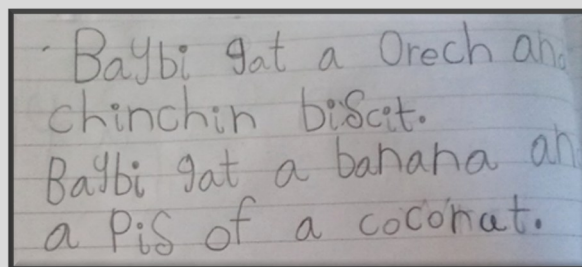 Baybi gat a Orech an
chinchin biscit.
Baybi gat a banana an
a Pis of a coconat.